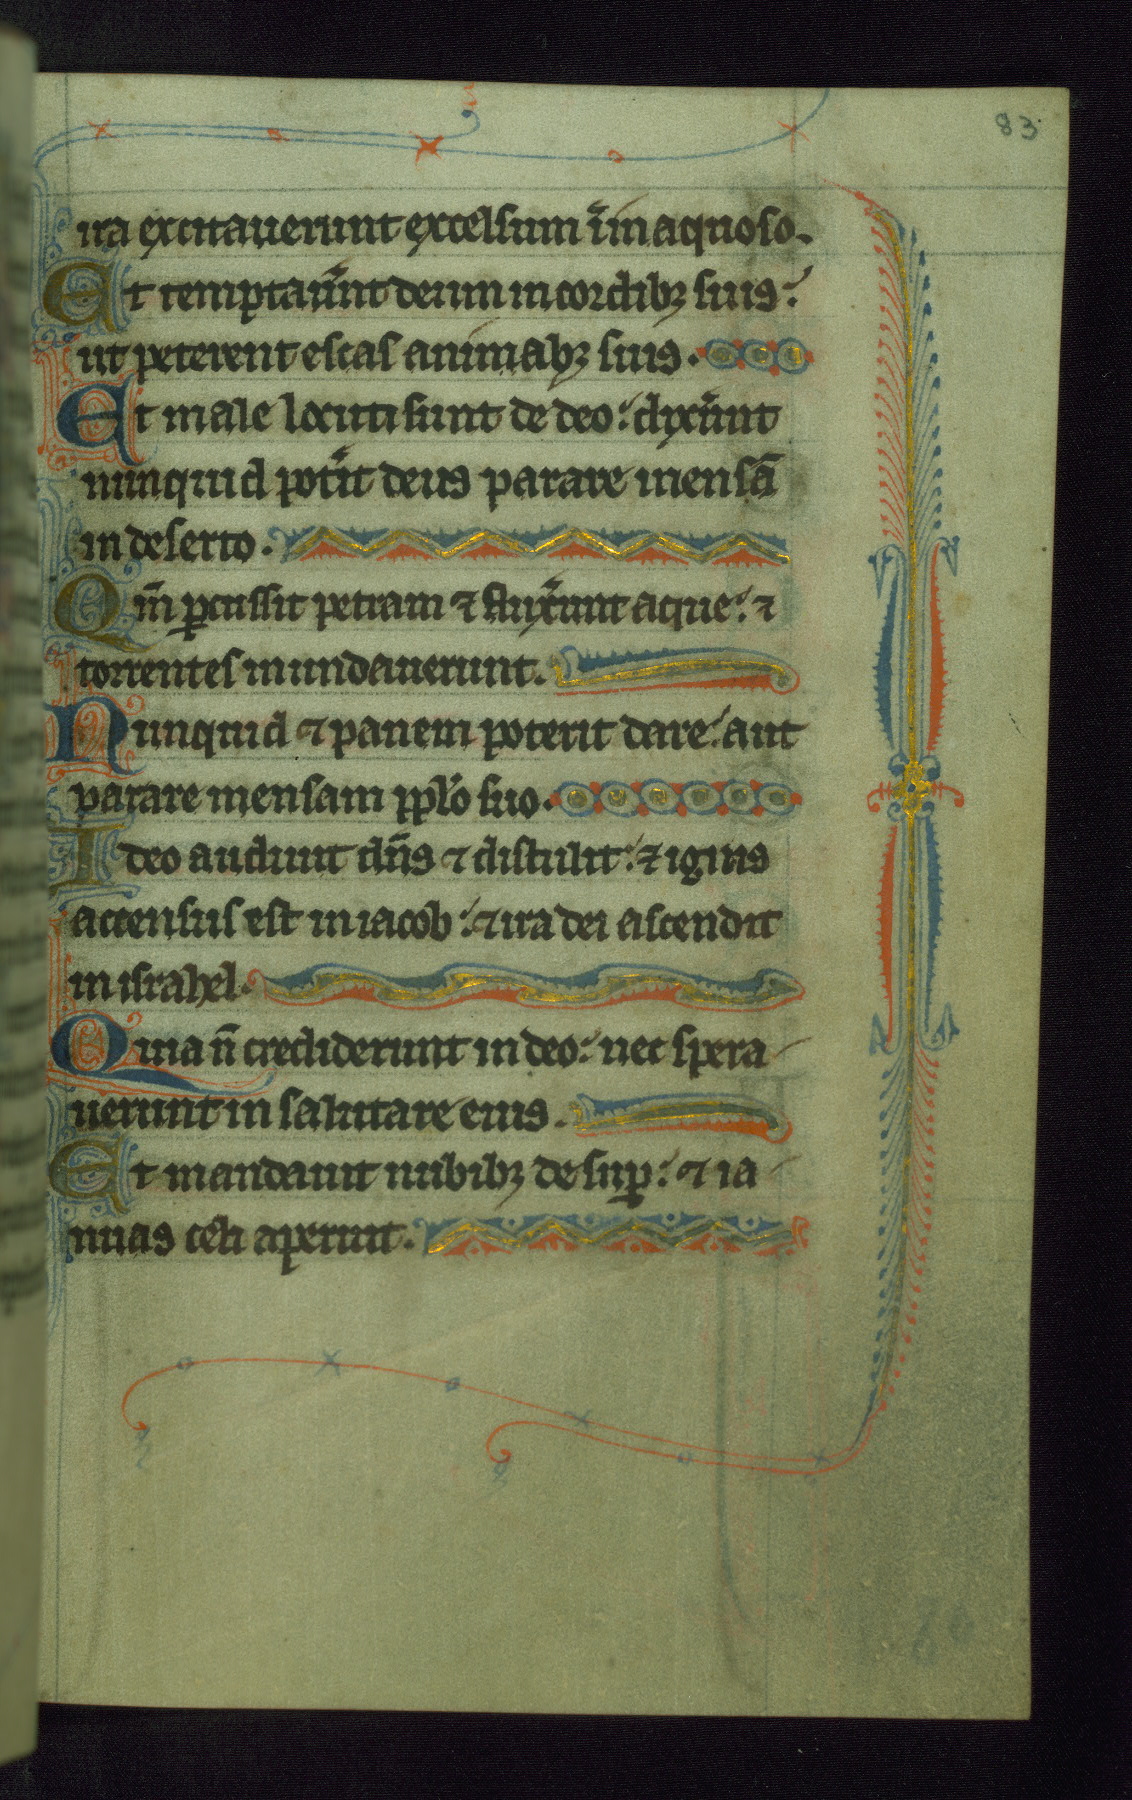 83
ira excitauerunt excelsum i̅ inaquoso.
Et temptaueru̅t deum in cordib; suis:
ut peterent escas animab; suis.
Et male locuti sunt de deo: dixer̅unt
nunquid pot̅it deus parare mensā
in deserto.
Qm̅ ꝑcussit petram ⁊ fluxer̅unt aque: ⁊
torrentes inundauerunt.
Nunquid ⁊ panem poterit dare: aut
parare mensam pplo̅ suo.
Ideo audiuit dn̅s ⁊ distulit: ⁊ ignis
accensus est in iacob: ⁊ ira dei ascendit
in israhel.
Quia n̅ crediderunt in deo: nec spera
uerunt in salutare eius.
Et mandauit nubib; desuꝑ: ⁊ ia
nuas celi aperuit.